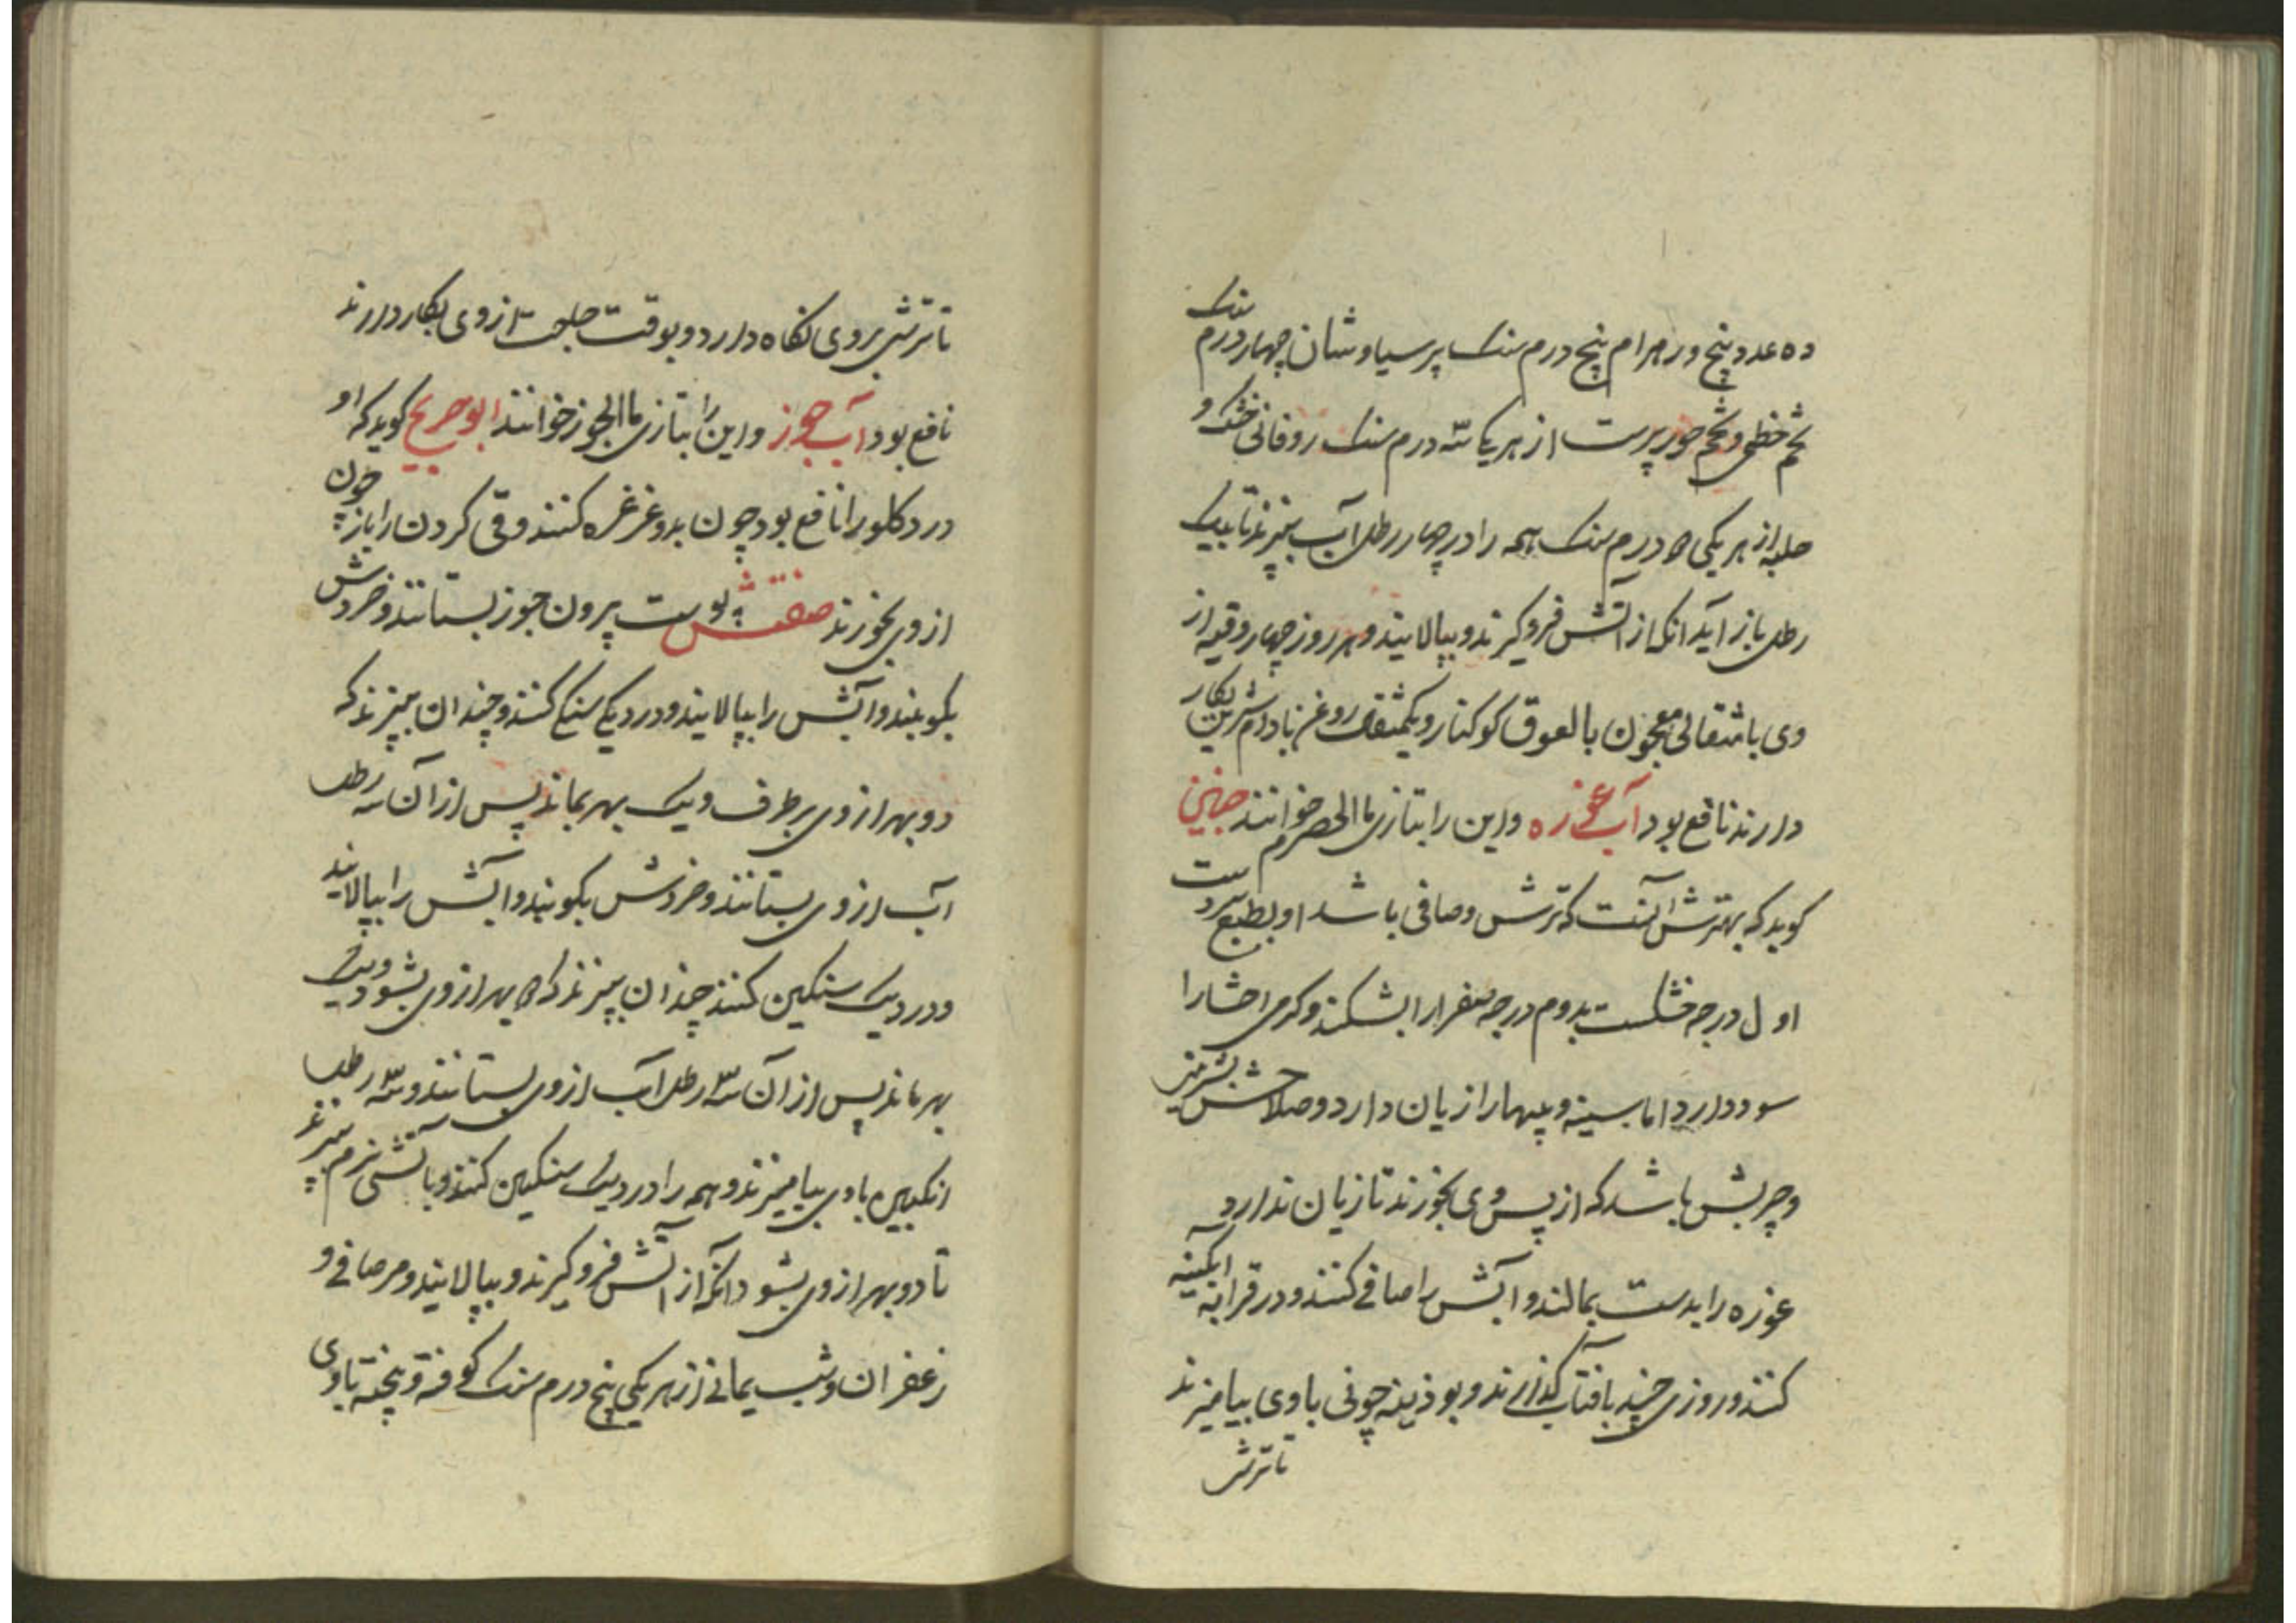 ده عدد و پنج ورمرام پنج درم سنک پرسیاوشان چهار درم سنک
تخم خطمی و تخم خور پرست از هر یک سه درم سنک روفانی خشک و
حلبه از هر یکی ده درم سنک همه را در چهار رطل آب بپزند تا بیک
رطل باز آید انکه از آتش فرو کیرند و بپالایند و هر روز چهار وقیه از
وی با مثقالی معجون با لعوق کوکنار و یکمثقال روغن بادام شرین بکار
دارند نافع بود آب غوزه و این را بتازی ما الحصرم خوانند حنین
کوید که بهترش آنست که ترش و صافی باشد او بطبع سردست
اول درجه خشکست بدوم درجه صفرا را بشکند و کرمی احشا را
سود دارد اما سینه و پیها را زیان دارد و صلاحش بشیرینی
و چربش باشد که از پس وی بخورند تا زیان ندارد
غوزه را بدست بمالند و آبش را صافی کنند و در قرابه ابکینه
کنند و روزی چند بافتاب کذارند و بوذینه جونی با وی بیامیزند
تا ترش
تا ترشی بروی نکاه دارد و بوقت حاجت ازوی بکار دارند
نافع بود آب جوز و این را بتازی ما الجوز خوانند ابو جریح کوید که او
درد کلو را نافع بود چون بدو غرغره کنند و قی کردن را باز چون
ازوی بخورند صفتش پوست برون جوز بستانند و خردش
بکوبند و آبش را بپالایند و در دیک سنکی کنند و چندان بپزند که
دو بهر ازوی بر طرف و یک بهر بماند پس از آن سه رطل
آب ازوی بستانند و خردش بکوبند و آبش را بپالایند
و در دیک سنکین کنند چندان بپزند که بهر ازوی بشود و یک
بهر ماند پس از آن سه رطل آب ازوی بستانند و سه رطل
انکبین باوی بیامیزند و همه را در دیک سنکین کنند و باتشی نرم بپزند
تا دو بهر ازوی بشود و انکه از آتش فرو کیرند و بپالایند و مر صافی و
زعفران و شب یمانی از هر یکی پنج درم سنک کوفته و پخته باوی